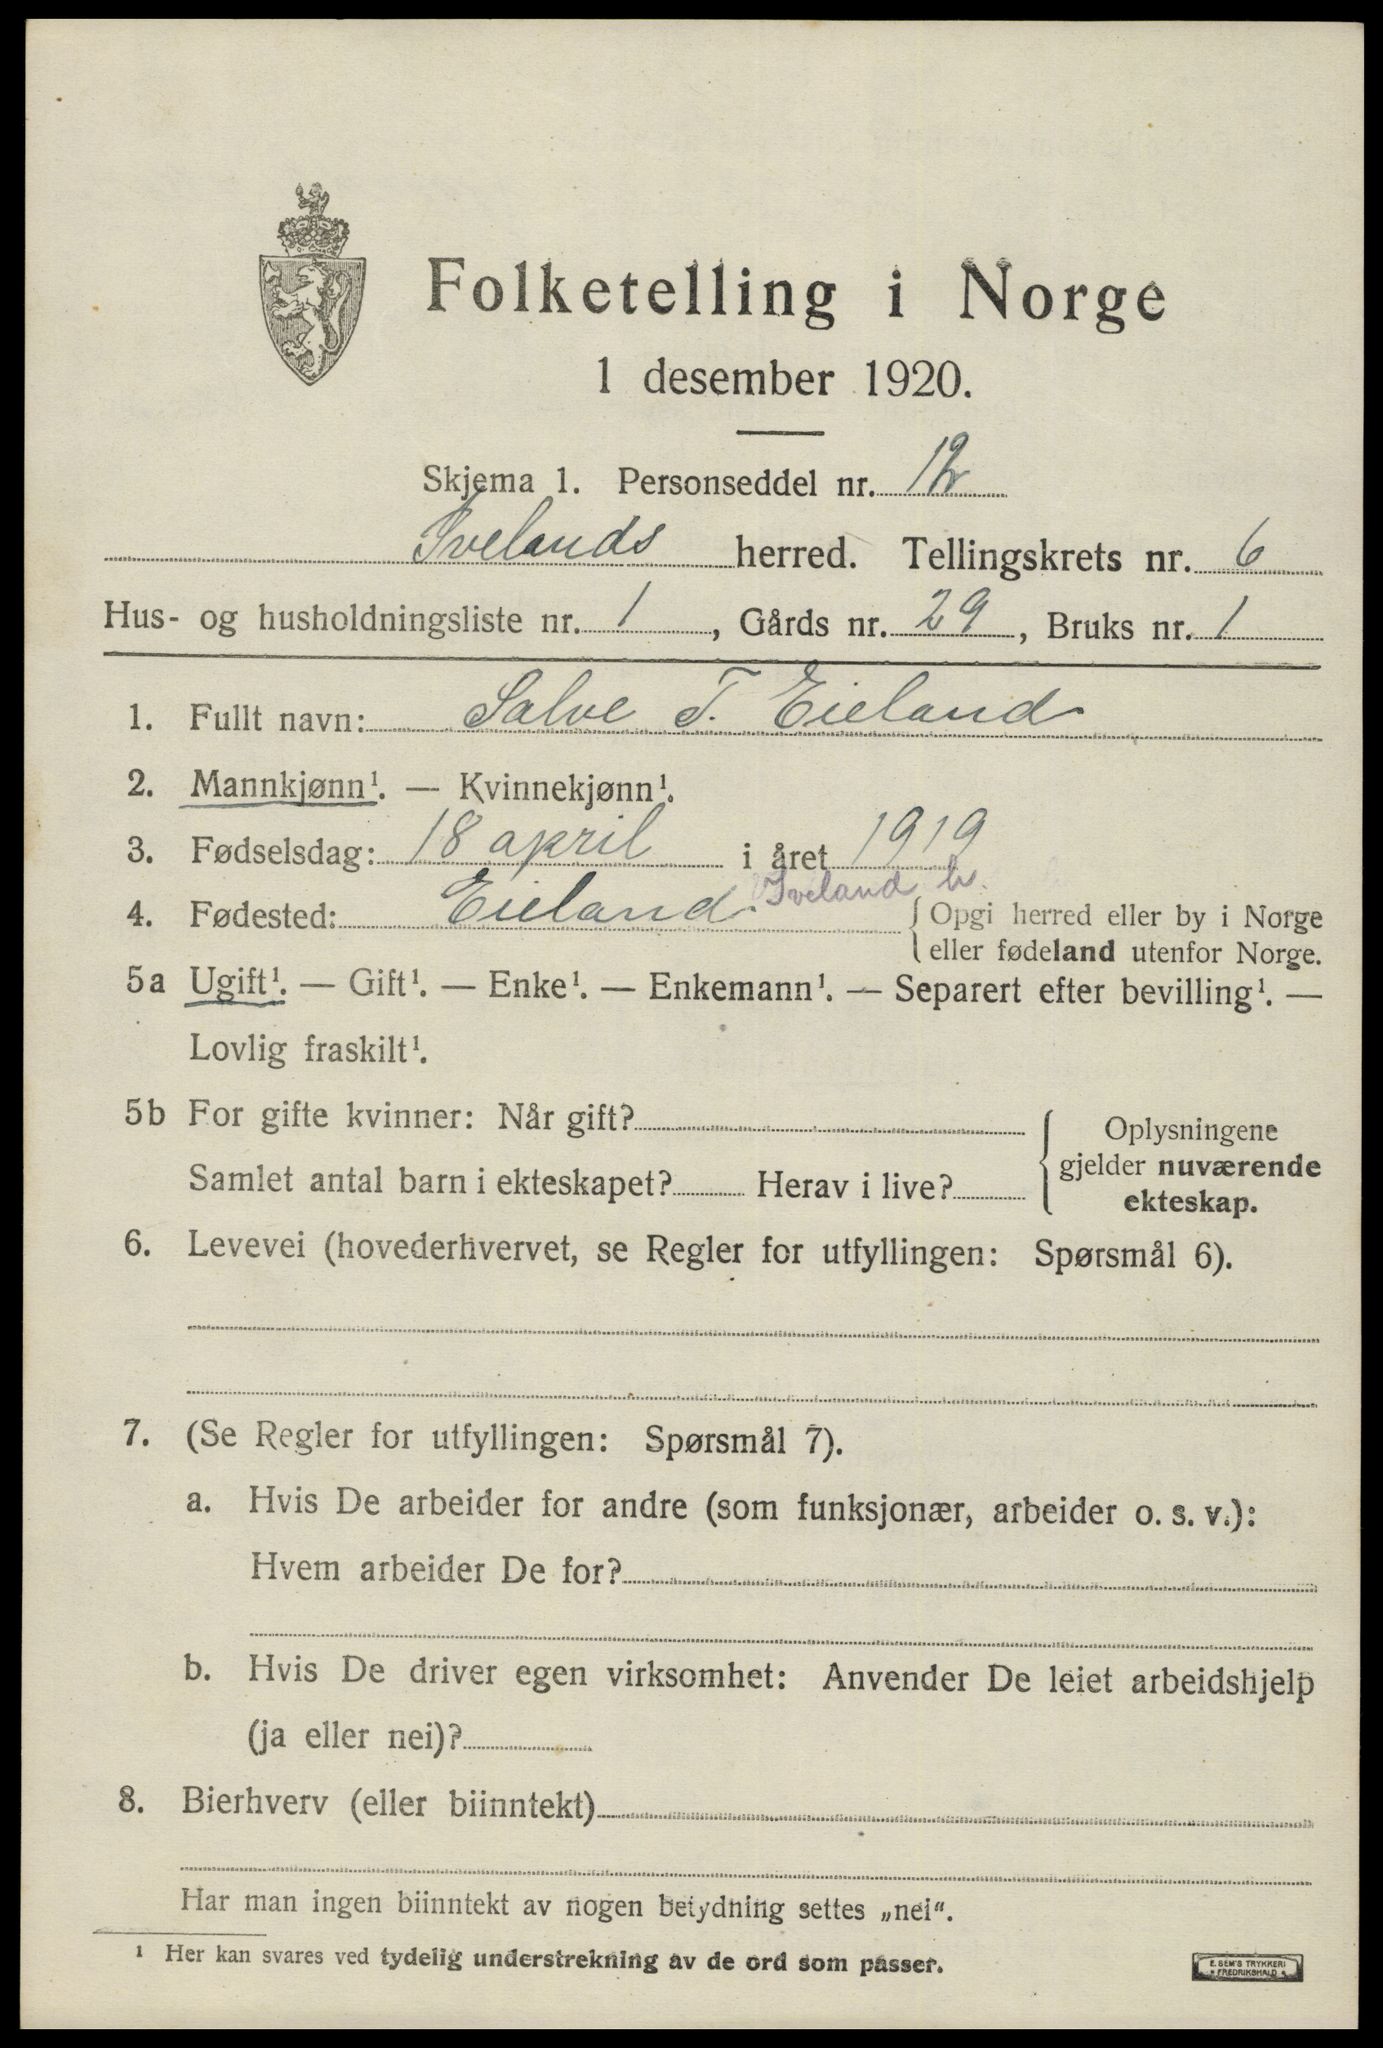 Folketelling i Norge
1 desember 1920.
Skjema 1. Personseddel nr. 12
Ivelands herred. Tellingskrets nr. 6
Hus- og husholdningsliste nr. 1, Gårds nr. 29, Bruks nr. 1
1. Fullt navn: Salve T. Eieland
2. Mannkjønn¹. — Kvinnekjønn¹.
3. Fødselsdag: 18 april i året 1919
Iveland h.
4. Fødested: Eieland. { Opgi herred eller by i Norge
eller fødeland utenfor Norge.
5a Ugift¹. — Gift¹. — Enke¹. — Enkemann¹. — Separert efter bevilling¹. —
Lovlig fraskilt¹.
5b For gifte kvinner: Når gift?
Samlet antal barn i ekteskapet? Herav i live?
{ Oplysningene
gjelder nuværende
ekteskap.
6. Levevei (hovederhvervet, se Regler for utfyllingen: Spørsmål 6).
7. (Se Regler for utfyllingen: Spørsmål 7).
a. Hvis De arbeider for andre (som funksjonær, arbeider o. s. v.):
Hvem arbeider De for?
b. Hvis De driver egen virksomhet: Anvender De leiet arbeidshjelp
(ja eller nei)?
8. Bierhverv (eller biinntekt)
Har man ingen biinntekt av nogen betydning settes „nei“.
¹ Her kan svares ved tydelig understrekning av de ord som passer.
E. SEM'S TRYKKERI
FREDRIKSHALD